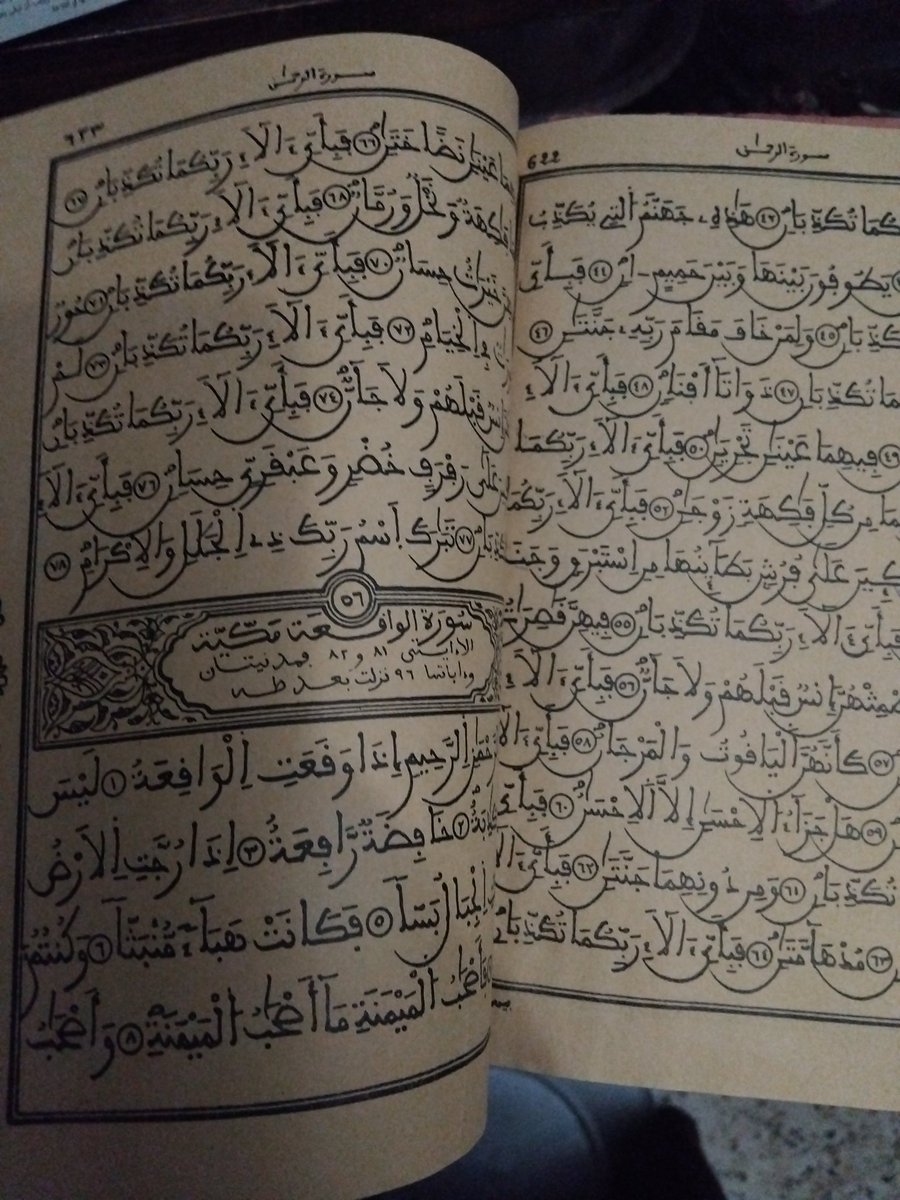 622
سورة الرحمن
تُكَذِّبَانِ ٤٢ هَٰذِهِۦ جَهَنَّمُ اَلتِے يُكَذِّبُ
يَطُوفُونَ بَيْنَهَا وَبَيْنَ حَمِيمٍ ـ اٰنٍ ٤٤ فَبِأَيِّ
٤٥ وَلِمَنْ خَافَ مَقَامَ رَبِّهِۦ جَنَّتَٰنِ ٤٦
تُكَذِّبَانِ ٤٧ ذَوَاتَآ أَفْنَانٍ ٤٨ فَبِأَيِّ ءَالَآءِ
٤٩ فِيهِمَا عَيْنَٰنِ تَجْرِيَٰنِ ٥٠ فَبِأَيِّ ءَالَآءِ رَبِّكُمَا
مِن كُلِّ فَٰكِهَةٍ زَوْجَٰنِ ٥٢ فَبِأَيِّ ءَالَآءِ رَبِّكُمَا
عَلَىٰ فُرُشٍ بَطَآئِنُهَا مِنِ اِسْتَبْرَقٍ وَجَنَى
ءَالَآءِ رَبِّكُمَا تُكَذِّبَانِ ٥٥ فِيهِنَّ قَٰصِرَٰتُ
إِنسٌ قَبْلَهُمْ وَلَا جَآنٌّ ٥٦ فَبِأَيِّ ءَالَآءِ
٥٧ كَأَنَّهُنَّ اَلْيَاقُوتُ وَالْمَرْجَانُ ٥٨ فَبِأَيِّ
٥٩ هَلْ جَزَآءُ اُلِاحْسَٰنِ إِلَّا اَلِاحْسَٰنُ ٦٠ فَبِأَيِّ
تُكَذِّبَانِ ٦١ وَمِن دُونِهِمَا جَنَّتَٰنِ ٦٢ فَبِأَيِّ
٦٣ مُدْهَآمَّتَٰنِ ٦٤ فَبِأَيِّ ءَالَآءِ رَبِّكُمَا تُكَذِّبَانِ
٦٢٣
سورة الرحمن
عَيْنَٰنِ نَضَّاخَتَٰنِ ٦٦ فَبِأَيِّ ءَالَآءِ رَبِّكُمَا تُكَذِّبَانِ ٦٧
فَٰكِهَةٌ وَنَخْلٌ وَرُمَّانٌ ٦٨ فَبِأَيِّ ءَالَآءِ رَبِّكُمَا تُكَذِّبَانِ
خَيْرَٰتٌ حِسَانٌ ٧٠ فَبِأَيِّ ءَالَآءِ رَبِّكُمَا تُكَذِّبَانِ ٧١ حُورٌ
فِے اِلْخِيَامِ ٧٢ فَبِأَيِّ ءَالَآءِ رَبِّكُمَا تُكَذِّبَانِ ٧٣ لَمْ
قَبْلَهُمْ وَلَا جَآنٌّ ٧٤ فَبِأَيِّ ءَالَآءِ رَبِّكُمَا تُكَذِّبَانِ
عَلَىٰ رَفْرَفٍ خُضْرٍ وَعَبْقَرِيٍّ حِسَانٍ ٧٦ فَبِأَيِّ ءَالَآءِ
٧٧ تَبَٰرَكَ اَسْمُ رَبِّكَ ذِے اِلْجَلَٰلِ وَالِاكْرَامِ ٧٨
٥٦
سورة الواقعة مكية
الا آيتي ٨١ و ٨٢ فمدنيتان
وآياتها ٩٦ نزلت بعد طه
اِلرَّحِيمِ إِذَا وَقَعَتِ اِلْوَاقِعَةُ ١ لَيْسَ
٢ خَافِضَةٌ رَّافِعَةٌ ٣ إِذَا رُجَّتِ اِلَارْضُ
اِلْجِبَالُ بَسّاً ٥ فَكَانَتْ هَبَآءً مُّنْبَثّاً ٦ وَكُنتُمُ
اَلْمَيْمَنَةِ مَآ أَصْحَٰبُ اُلْمَيْمَنَةِ ٨ وَأَصْحَٰبُ